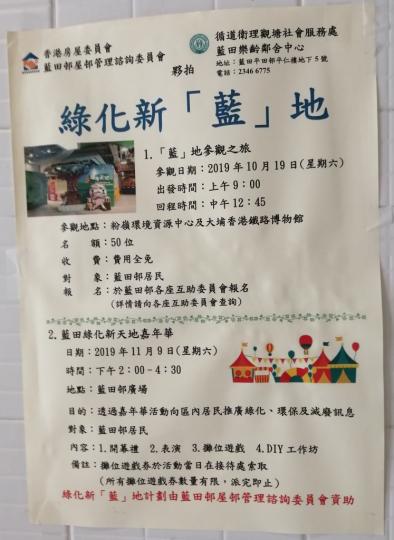 香港房屋委員會
藍田邨屋邨管理諮詢委員會
夥拍
循道衛理觀塘社會服務處
藍田樂齡鄰舍中心
地址：藍田平田邨平仁樓地下5號
電話：2346 6775
綠化新「藍」地
1.「藍」地參觀之旅
參觀日期：2019年10月19日(星期六)
出發時間：上午9：00
回程時間：中午12：45
參觀地點：粉嶺環境資源中心及大埔香港鐵路博物館
名額：50位
收費：費用全免
對象：藍田邨居民
報名：於藍田邨各座互助委員會報名
(詳情請向各座互助委員會查詢)
2.藍田綠化新天地嘉年華
日期：2019年11月9日(星期六)
時間：下午2：00-4：30
地點：藍田邨廣場
目的：透過嘉年華活動向區內居民推廣綠化、環保及減廢訊息
對象：藍田邨居民
內容：1.開幕禮 2.表演 3.攤位遊戲 4.DIY工作坊
備註：攤位遊戲券於活動當日在接待處索取
(所有攤位遊戲券數量有限，派完即止)
綠化新「藍」地計劃由藍田邨屋邨管理諮詢委員會資助